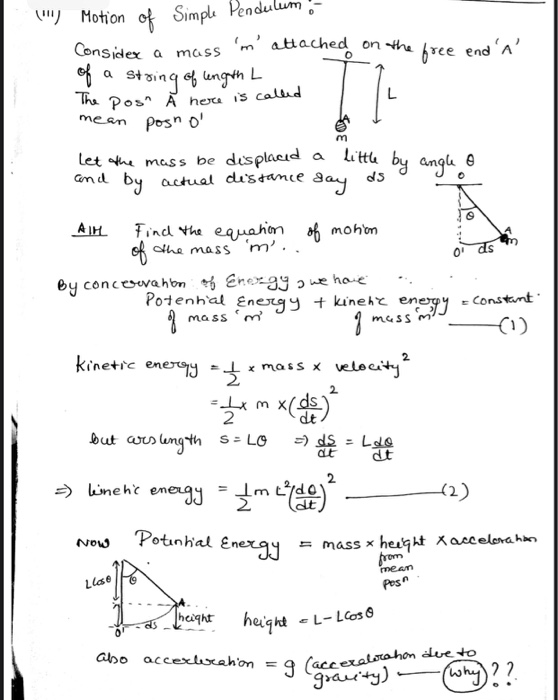 (iii) Motion of Simple Pendulum :-
Consider a mass 'm' attached on the free end 'A'
of a string of length L
The posⁿ A here is called
mean posⁿ O'
O
L
A
m
let the mass be displaced a little by angle θ
and by actual distance say ds
O
θ
A
m
O' ds
AIM Find the equation of motion
of the mass 'm'..
By conservation of Energy, we have
Potential Energy + kinetic energy = constant
of mass 'm' of mass 'm' —(1)
kinetic energy = 1/2 × mass × velocity²
= 1/2 × m × (ds/dt)²
but arc length S = Lθ ⇒ ds/dt = L dθ/dt
⇒ kinetic energy = 1/2 m L² (dθ/dt)² —(2)
Now Potential Energy = mass × height × acceleration
from
mean
posⁿ
Lcosθ
θ
A
O' ds height
height = L - Lcosθ
also acceleration = g (acceleration due to
gravity) — (why)??